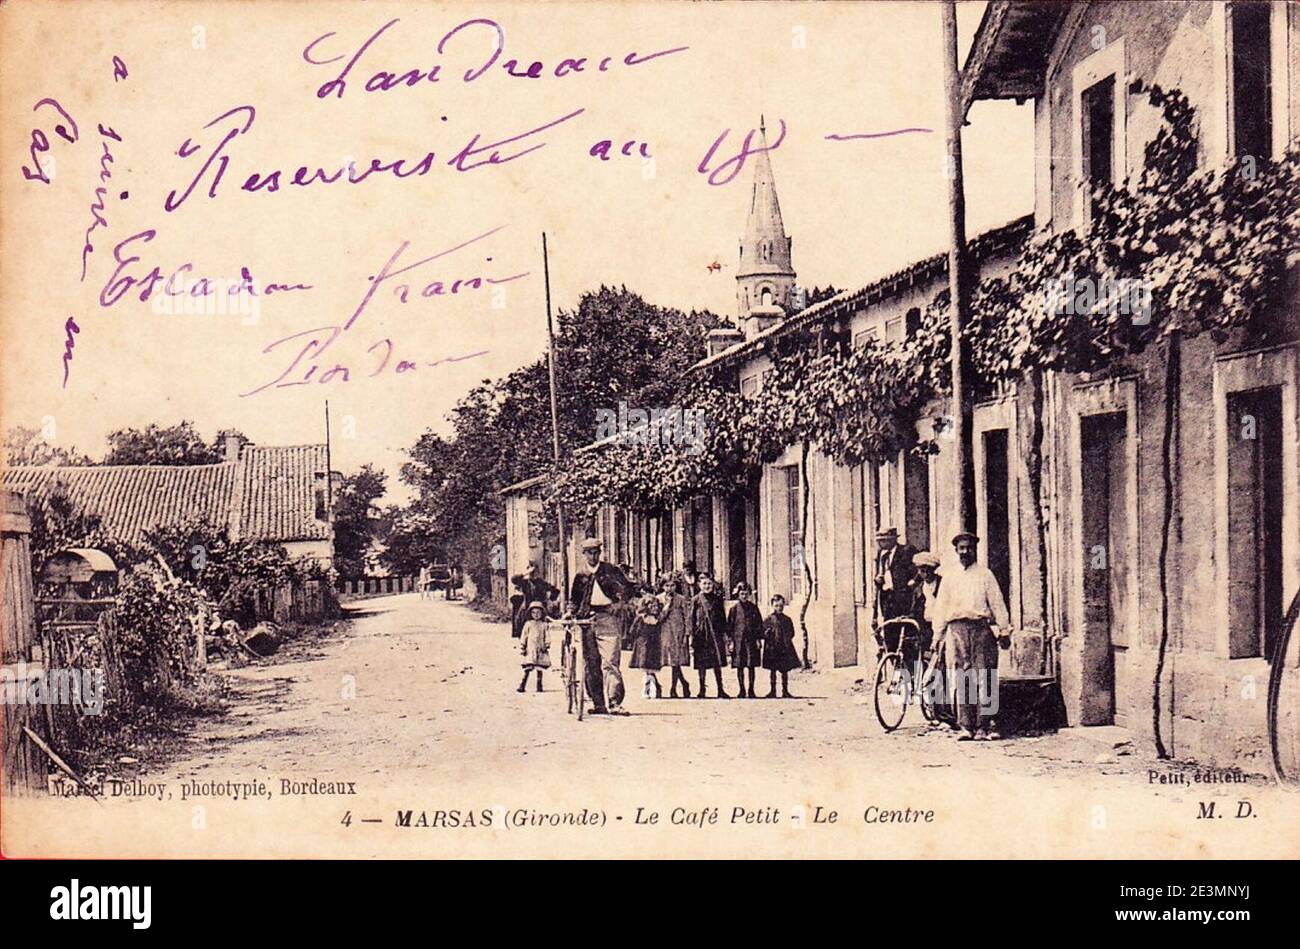 Landreau
Reserviste au 18 —
Escadron train
a suivre en
Cas
Marcel Delboy, phototypie, Bordeaux
Petit, éditeur
4 — MARSAS (Gironde) - Le Café Petit - Le Centre
M. D.
alamy
Image ID: 2E3MNYJ
www.alamy.com